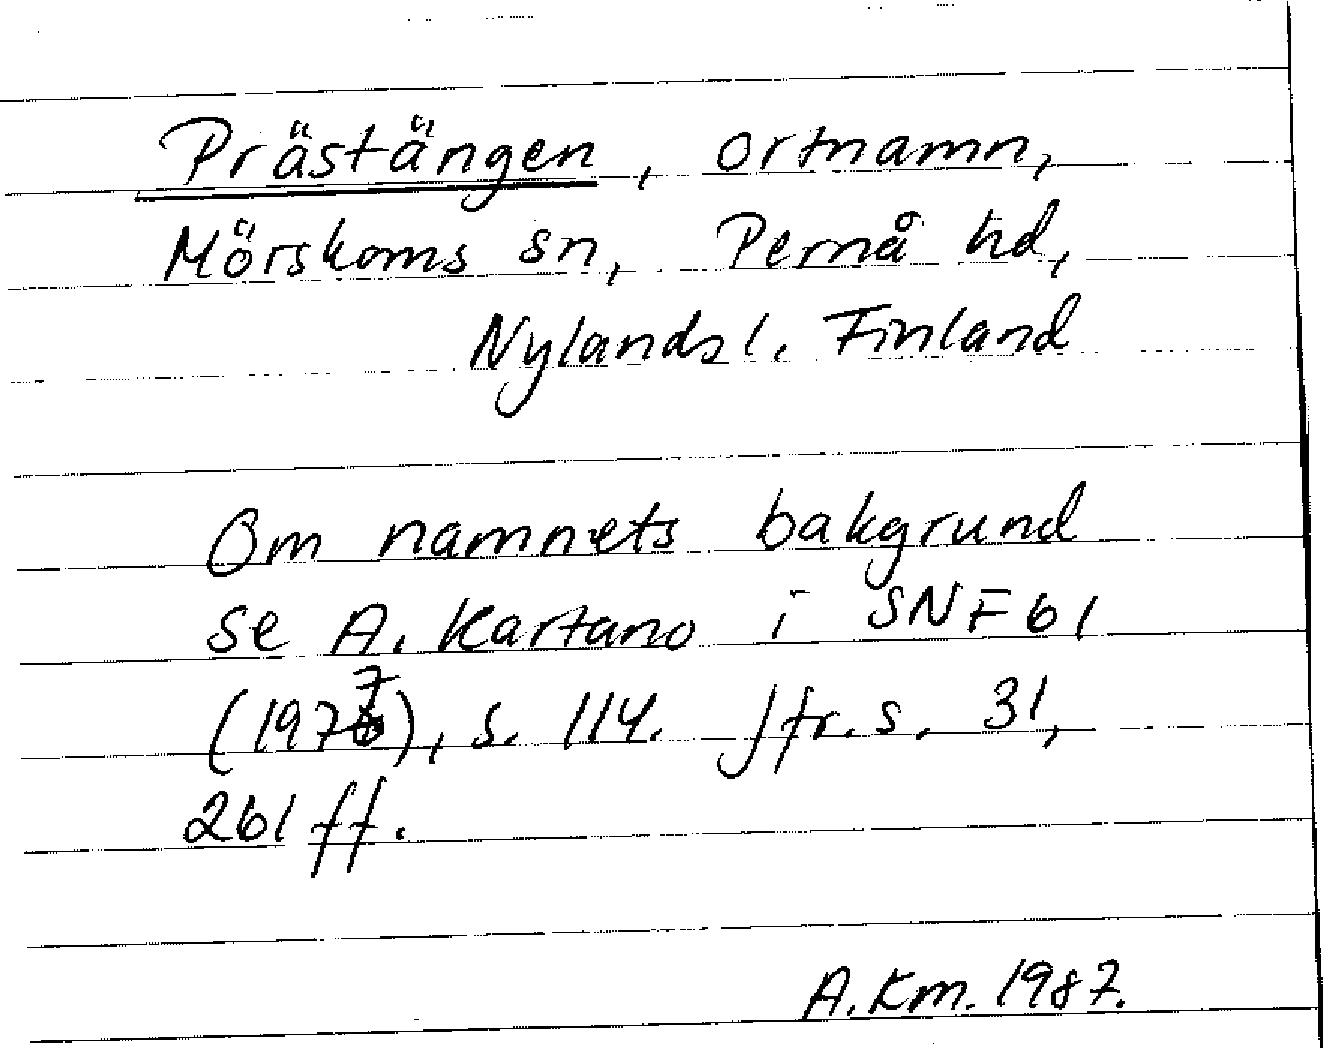 Prästängen, ortnamn,
Mörskoms sn, Pernå hd,
Nylands l. Finland
Om namnets bakgrund
se A. Kartano i SNF 61
(1977), s. 114. Jfr. s. 31,
261 ff.
A.Km. 1987.